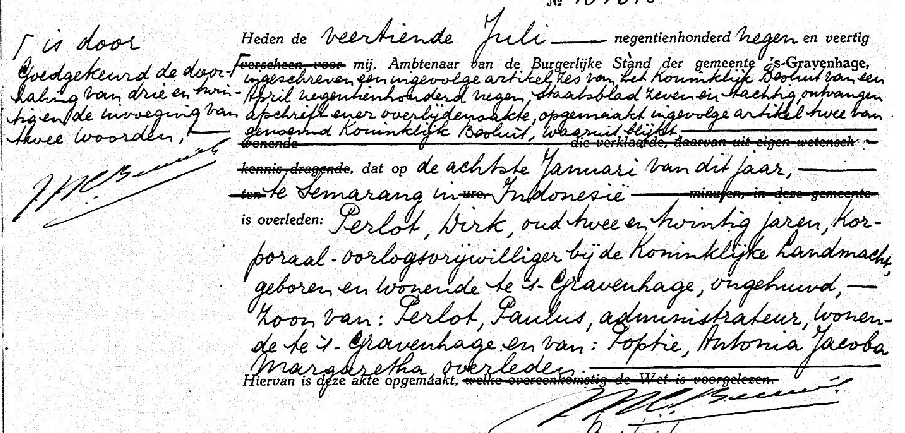 No
Heden de veertiende Juli — negentienhonderd negen en veertig
verscheen voor mij, Ambtenaar van de Burgerlijke Stand der gemeente 's-Gravenhage,
ingeschreven een ingevolge artikel zes van het Koninklijk Besluit van een
April negentienhonderd negen, staatsblad zeven en tachtig ontvangen
afschrift ener overlijdensakte, opgemaakt ingevolge artikel twee van
genoemd Koninklijk Besluit, waaruit blijkt
wonende die verklaarde, daarvan uit eigen wetensch
kennis dragende, dat op de achtste Januari van dit jaar, —
ten te Semarang in ure Indonesië minuten, in deze gemeente
is overleden: Perlot, Dirk, oud twee en twintig jaren, Kor-
poraal-oorlogsvrijwilliger bij de Koninklijke Landmacht,
geboren en wonende te 's-Gravenhage, ongehuwd, —
zoon van: Perlot, Paulus, administrateur, wonen-
de te 's-Gravenhage en van: Toptie, Antonia Jacoba
Margaretha, overleden.
Hiervan is deze akte opgemaakt, welke overeenkomstig de Wet is voorgelezen.
Γ is door
Goedgekeurd de door-
haling van drie en twin-
tig en de invoeging van
twee woorden, —